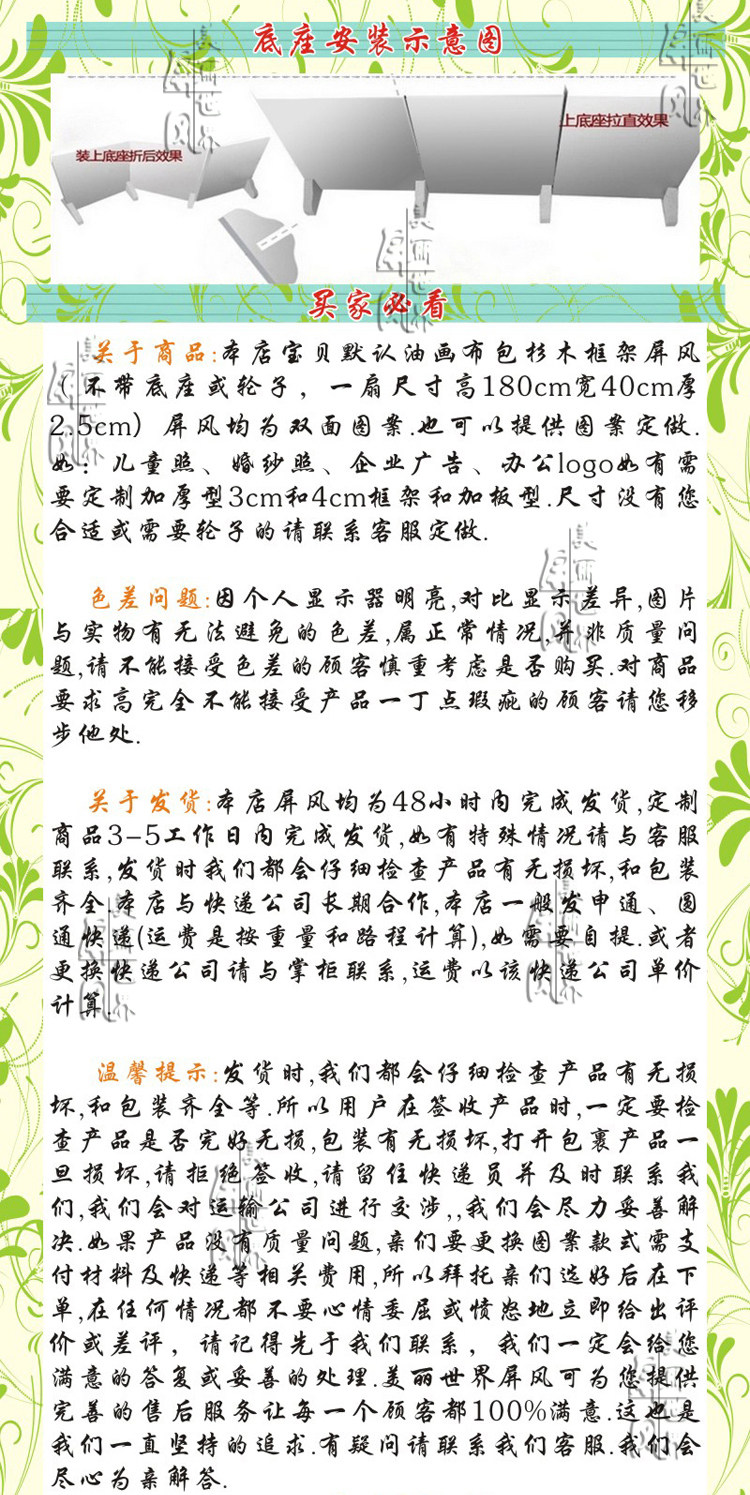 底座安装示意图
装上底座折后效果
上底座拉直效果
买家必看
关于商品:本店宝贝默认油画布包杉木框架屏风
(不带底座或轮子，一扇尺寸高180cm宽40cm厚
2.5cm）屏风均为双面图案.也可以提供图案定做.
如：儿童照、婚纱照、企业广告、办公logo如有需
要定制加厚型3cm和4cm框架和加板型.尺寸没有您
合适或需要轮子的请联系客服定做.
色差问题:因个人显示器明亮,对比显示差异,图片
与实物有无法避免的色差,属正常情况,并非质量问
题,请不能接受色差的顾客慎重考虑是否购买.对商品
要求高完全不能接受产品一丁点瑕疵的顾客请您移
步他处.
关于发货:本店屏风均为48小时内完成发货,定制
商品3-5工作日内完成发货,如有特殊情况请与客服
联系,发货时我们都会仔细检查产品有无损坏,和包装
齐全.本店与快递公司长期合作,本店一般发申通、圆
通快递(运费是按重量和路程计算),如需要自提.或者
更换快递公司请与掌柜联系,运费以该快递公司单价
计算.
温馨提示:发货时,我们都会仔细检查产品有无损
坏,和包装齐全等.所以用户在签收产品时,一定要检
查产品是否完好无损,包装有无损坏,打开包裹产品一
旦损坏,请拒绝签收,请留住快递员并及时联系我
们,我们会对运输公司进行交涉,,我们会尽力妥善解
决.如果产品没有质量问题,亲们要更换图案款式需支
付材料及快递等相关费用,所以拜托亲们选好后在下
单,在任何情况都不要心情委屈或愤怒地立即给出评
价或差评，请记得先于我们联系，我们一定会给您
满意的答复或妥善的处理.美丽世界屏风可为您提供
完善的售后服务让每一个顾客都100%满意.这也是
我们一直坚持的追求.有疑问请联系我们客服.我们会
尽心为亲解答.
美丽世界
屏风